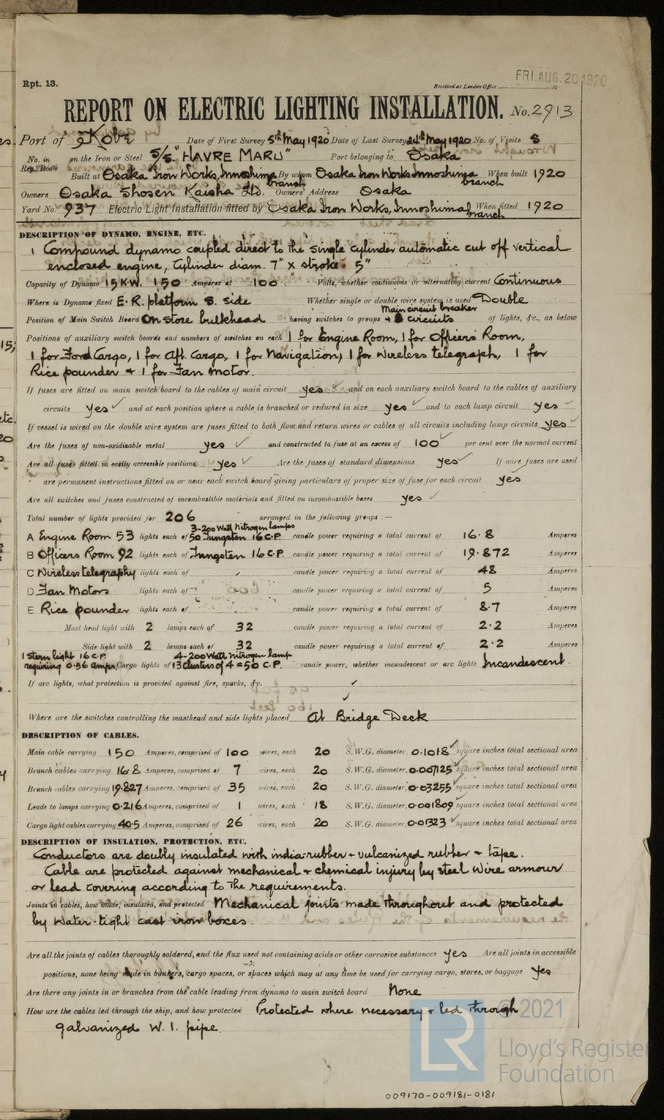 Rpt. 13.
Received at London Office FRI. AUG. 20 1920
REPORT ON ELECTRIC LIGHTING INSTALLATION. No. 2913
Port of Kobe Date of First Survey 5th May 1920 Date of Last Survey 24th May 1920 No. of Visits 8
No. in Reg. Book on the Iron or Steel S/S. "HAVRE MARU" Port belonging to Osaka
Built at Osaka Iron Works, Innoshima branch By whom Osaka Iron Works Innoshima branch When built 1920
Owners Osaka Shosen Kaisha Ltd. Owners' Address Osaka
Yard No. 937 Electric Light Installation fitted by Osaka Iron Works, Innoshima branch When fitted 1920
DESCRIPTION OF DYNAMO, ENGINE, ETC.
1 Compound dynamo coupled direct to the single cylinder automatic cut off vertical
enclosed engine, Cylinder diam. 7" x stroke 5"
Capacity of Dynamo 15 KW. 150 Amperes at 100 Volts, whether continuous or alternating current Continuous
Where is Dynamo fixed E.R. platform S. side Whether single or double wire system is used Double
Position of Main Switch Board On store bulkhead having switches to groups Main circuit breaker + 8 circuits of lights, &c., as below
Positions of auxiliary switch boards and numbers of switches on each 1 for Engine Room, 1 for Officers Room,
1 for Ford Cargo, 1 for Aft. Cargo, 1 for Navigation, 1 for Wireless telegraph, 1 for
Rice pounder & 1 for Fan Motor.
If fuses are fitted on main switch board to the cables of main circuit yes and on each auxiliary switch board to the cables of auxiliary
circuits yes and at each position where a cable is branched or reduced in size yes and to each lamp circuit yes
If vessel is wired on the double wire system are fuses fitted to both flow and return wires or cables of all circuits including lamp circuits yes
Are the fuses of non-oxidizable metal yes and constructed to fuse at an excess of 100 per cent over the normal current
Are all fuses fitted in easily accessible positions yes Are the fuses of standard dimensions yes If wire fuses are used
are permanent instructions fitted on or near each switch board giving particulars of proper size of fuse for each circuit yes
Are all switches and fuses constructed of incombustible materials and fitted on incombustible bases yes
Total number of lights provided for 206 arranged in the following groups :—
A Engine Room 53 lights each of 3-200 Watt Nitrogen lamps 50 Tungsten 16 C.P. candle power requiring a total current of 16.8 Amperes
B Officers Room 92 lights each of Tungsten 16 C.P. candle power requiring a total current of 19.872 Amperes
C Wireless telegraphy lights each of candle power requiring a total current of 48 Amperes
D Fan Motors lights each of candle power requiring a total current of 5 Amperes
E Rice pounder lights each of candle power requiring a total current of 8.7 Amperes
Mast head light with 2 lamps each of 32 candle power requiring a total current of 2.2 Amperes
Side light with 2 lamps each of 32 candle power requiring a total current of 2.2 Amperes
1 Stern light 16 C.P. requiring 0.56 Amper. Cargo lights of 4-200 Watt Nitrogen lamp 13 clusters of 4 = 50 C.P. candle power, whether incandescent or arc lights Incandescent
If arc lights, what protection is provided against fire, sparks, &c.
Where are the switches controlling the masthead and side lights placed At Bridge Deck
DESCRIPTION OF CABLES.
Main cable carrying 150 Amperes, comprised of 100 wires, each 20 S.W.G. diameter, 0.1018 square inches total sectional area
Branch cables carrying 16.8 Amperes, comprised of 7 wires, each 20 S.W.G. diameter, 0.007125 square inches total sectional area
Branch cables carrying 19.827 Amperes, comprised of 35 wires, each 20 S.W.G. diameter, 0.03255 square inches total sectional area
Leads to lamps carrying 0.216 Amperes, comprised of 1 wires, each 18 S.W.G. diameter, 0.001809 square inches total sectional area
Cargo light cables carrying 40.5 Amperes, comprised of 26 wires, each 20 S.W.G. diameter, 0.01323 square inches total sectional area
DESCRIPTION OF INSULATION, PROTECTION, ETC.
Conductors are doubly insulated with india-rubber + vulcanized rubber + tape.
Cable are protected against mechanical + chemical injury by steel wire armour
or lead covering according to the requirements.
Joints in cables, how made, insulated, and protected Mechanical joints made throughout and protected
by water-tight cast iron boxes
Are all the joints of cables thoroughly soldered, and the flux used not containing acids or other corrosive substances yes Are all joints in accessible
positions, none being made in bunkers, cargo spaces, or spaces which may at any time be used for carrying cargo, stores, or baggage yes
Are there any joints in or branches from the cable leading from dynamo to main switch board None
How are the cables led through the ship, and how protected Protected where necessary + led through
galvanized W. I. pipe.
© 2021
LR
Lloyd's Register
Foundation
009170-009181-0181